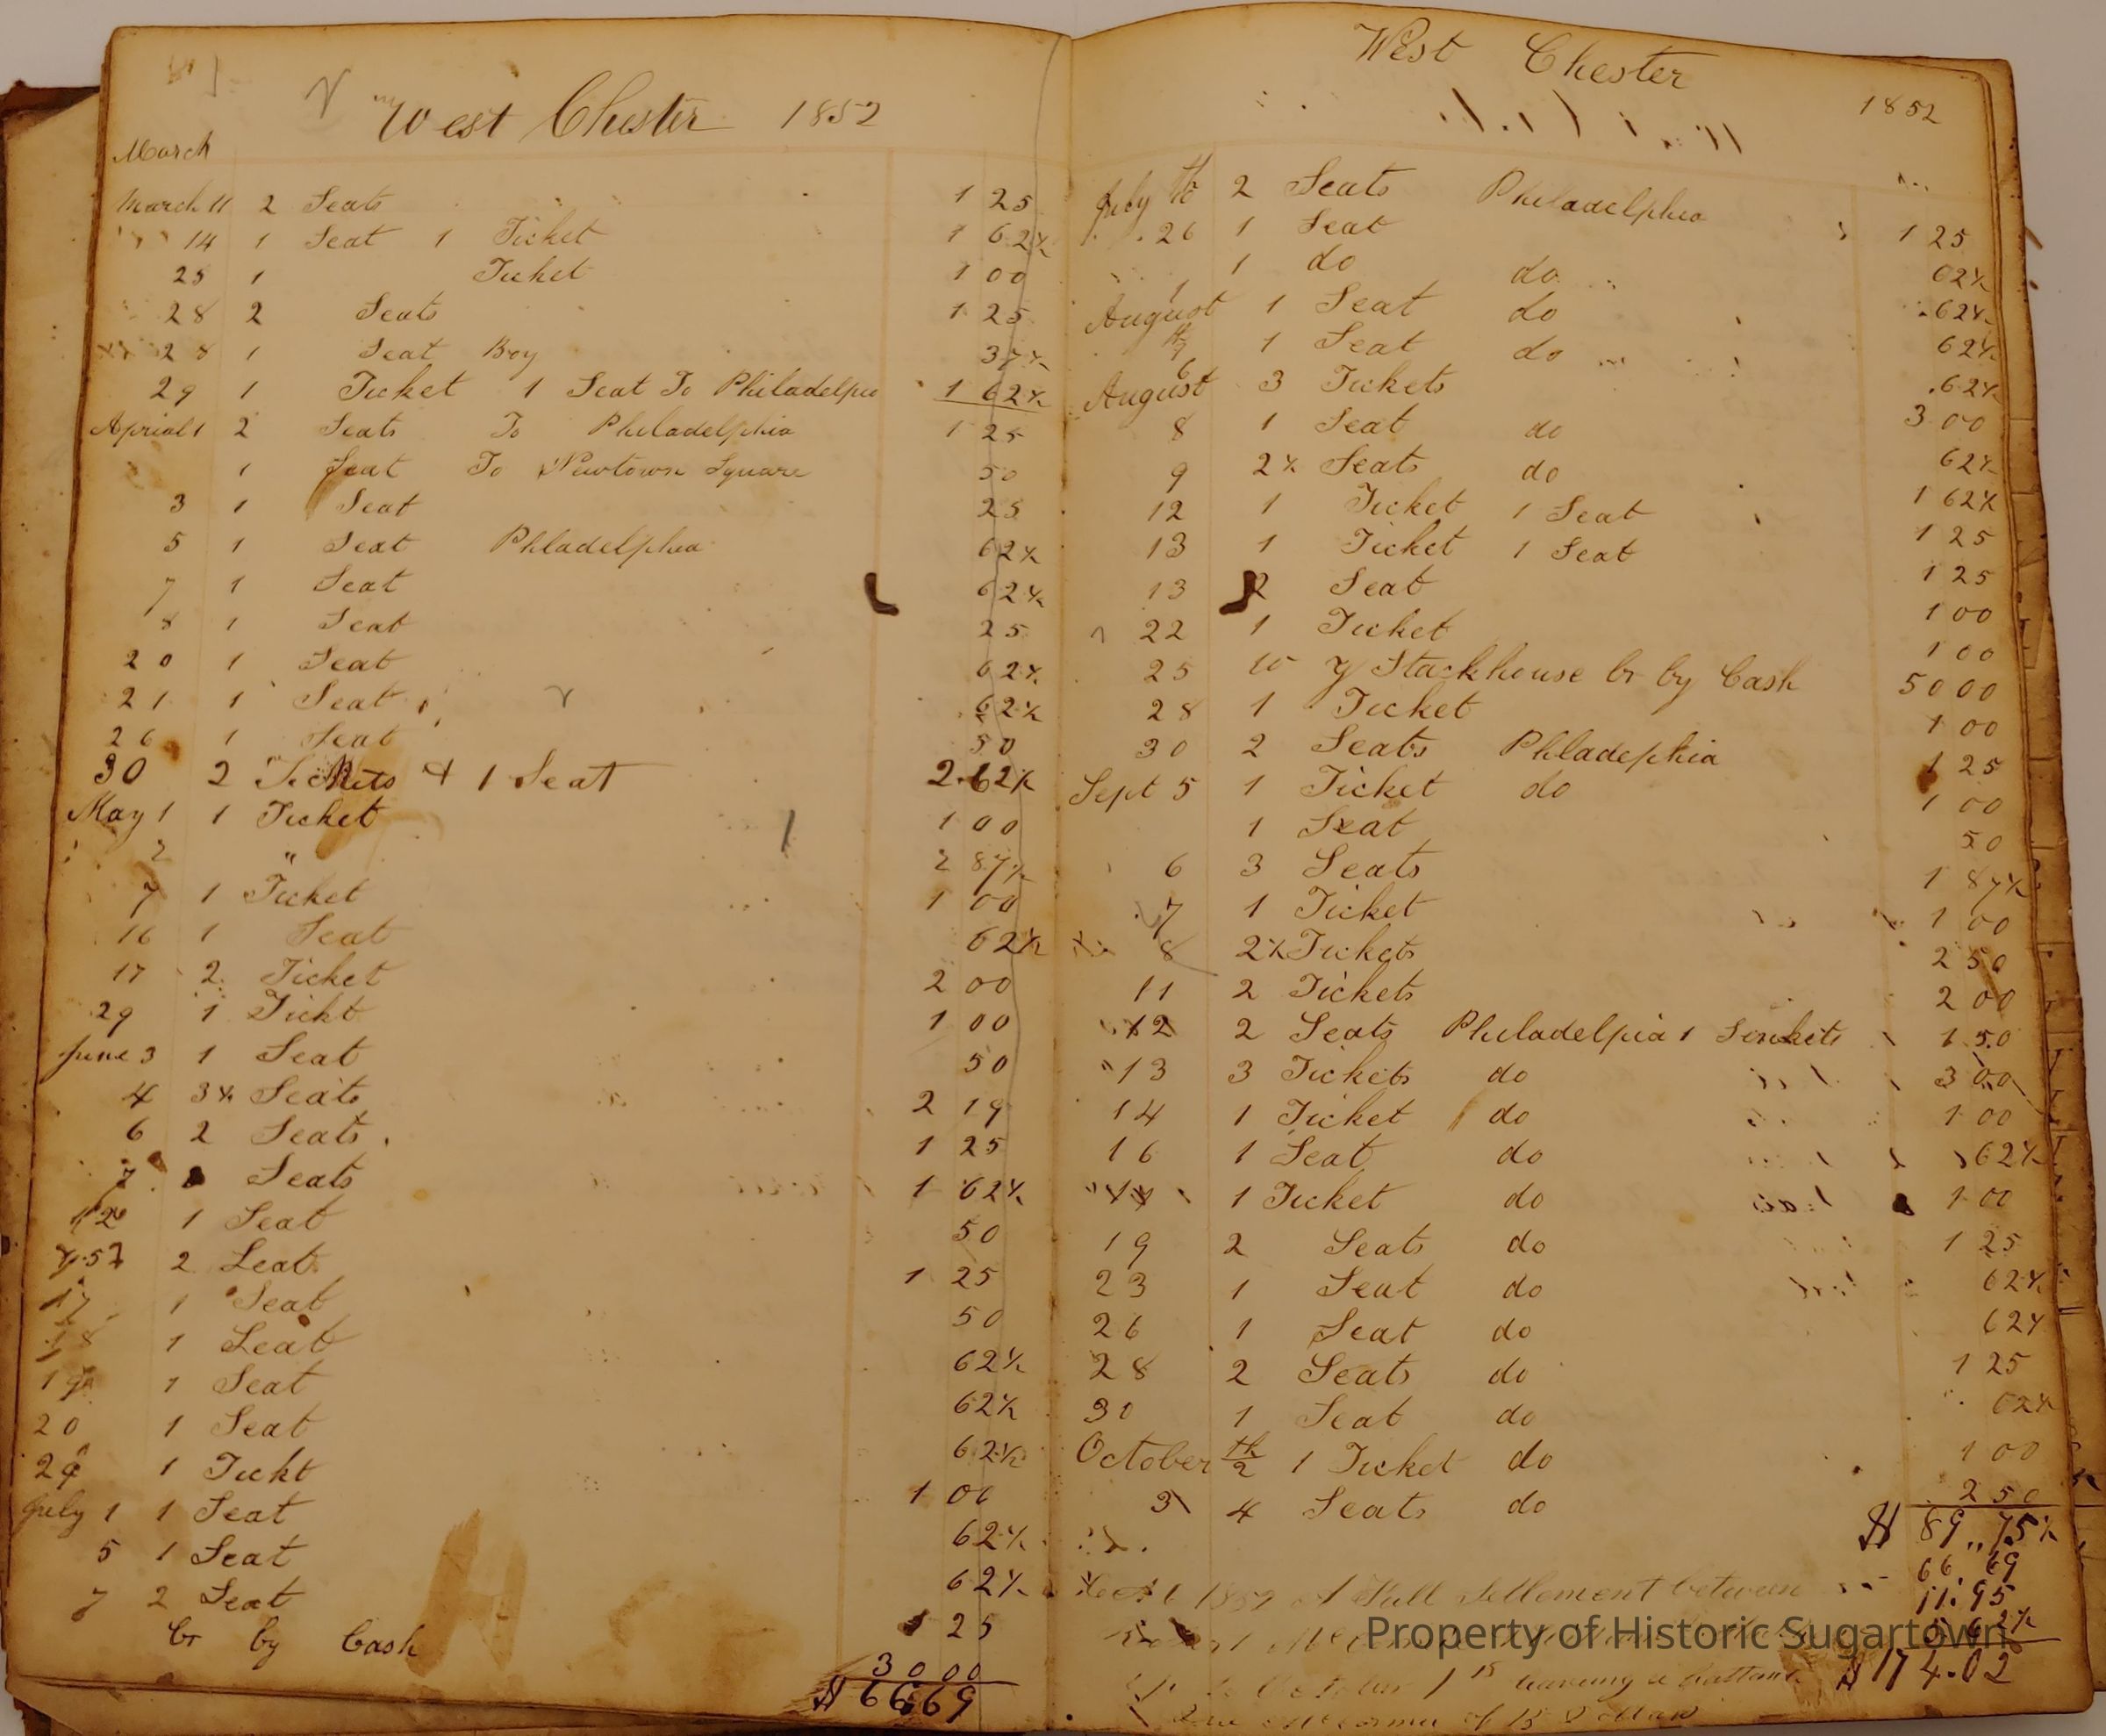 West Chester 1852
March
March 11 2 Seats 1 25
14 1 Seat 1 Ticket 1 62½
25 1 Ticket 1 00
28 2 Seats 1 25
28 1 Seat Boy 37½
29 1 Ticket 1 Seat To Philadelpia 1 62½
Aprial 1 2 Seats To Philadelphia 1 25
1 Seat To Newtown Square 50
3 1 Seat 25
5 1 Seat Phladelphia 62½
7 1 Seat 62½
8 1 Seat 25
20 1 Seat 62½
21 1 Seat 62½
26 1 Seat 50
30 2 Tickets & 1 Seat 2.62½
May 1 1 Ticket 1 00
2 " 2 87½
7 1 Ticket 1 00
16 1 Seat 62½
17 2 Ticket 2 00
29 1 Tickt 1 00
June 3 1 Seat 50
4 3½ Seats 2 19
6 2 Seats 1 25
7 Seats 1 62½
12 1 Seat 50
2 Seat 1 25
17 1 Seat 50
18 1 Seat 62½
19 1 Seat 62½
20 1 Seat 62½
29 1 Tickt 1 00
July 1 1 Seat 62½
5 1 Seat 62½
7 2 Seat 1 25
Cr by Cash 30 00
$ 66 69
West Chester
1852
July 2 Seats Philadelphia 1 25
26 1 Seat 62½
1 do do 62½
August 1 1 Seat do 62½
1 Seat do 62½
August 6 3 Tickets 3 00
8 1 Seat do 62½
9 2½ Seats do 1 62½
12 1 Ticket 1 Seat 1 25
13 1 Ticket 1 Seat 1 25
13 2 Seat 1 00
22 1 Ticket 1 00
25 Stackhouse Cr by Cash 50 00
28 1 Ticket 1 00
30 2 Seats Phladephia 1 25
Sept 5 1 Ticket do 1 00
1 Seat 50
6 3 Seats 1 87½
7 1 Ticket 1 00
8 2½ Tickets 2 50
11 2 Tickets 2 00
12 2 Seats Philadelpia 1 1.50
13 3 Tickets do 3 00
14 1 Ticket do 1 00
16 1 Seat do 62½
1 Ticket do 1 00
19 2 Seats do 1 25
23 1 Seat do 62½
26 1 Seat do 62½
28 2 Seats do 1 25
30 1 Seat do 62½
October 2th 1 Ticket do 1 00
3 4 Seats do 2 50
$ 89,,75½
66.69
11.95
5 62½
$174.02
1852 A Full Settlement between
October 1 leaving a
of 15 Dollars
Property of Historic Sugartown